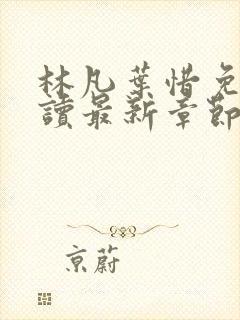 林凡葉惜免
讀最新章節
京蔚